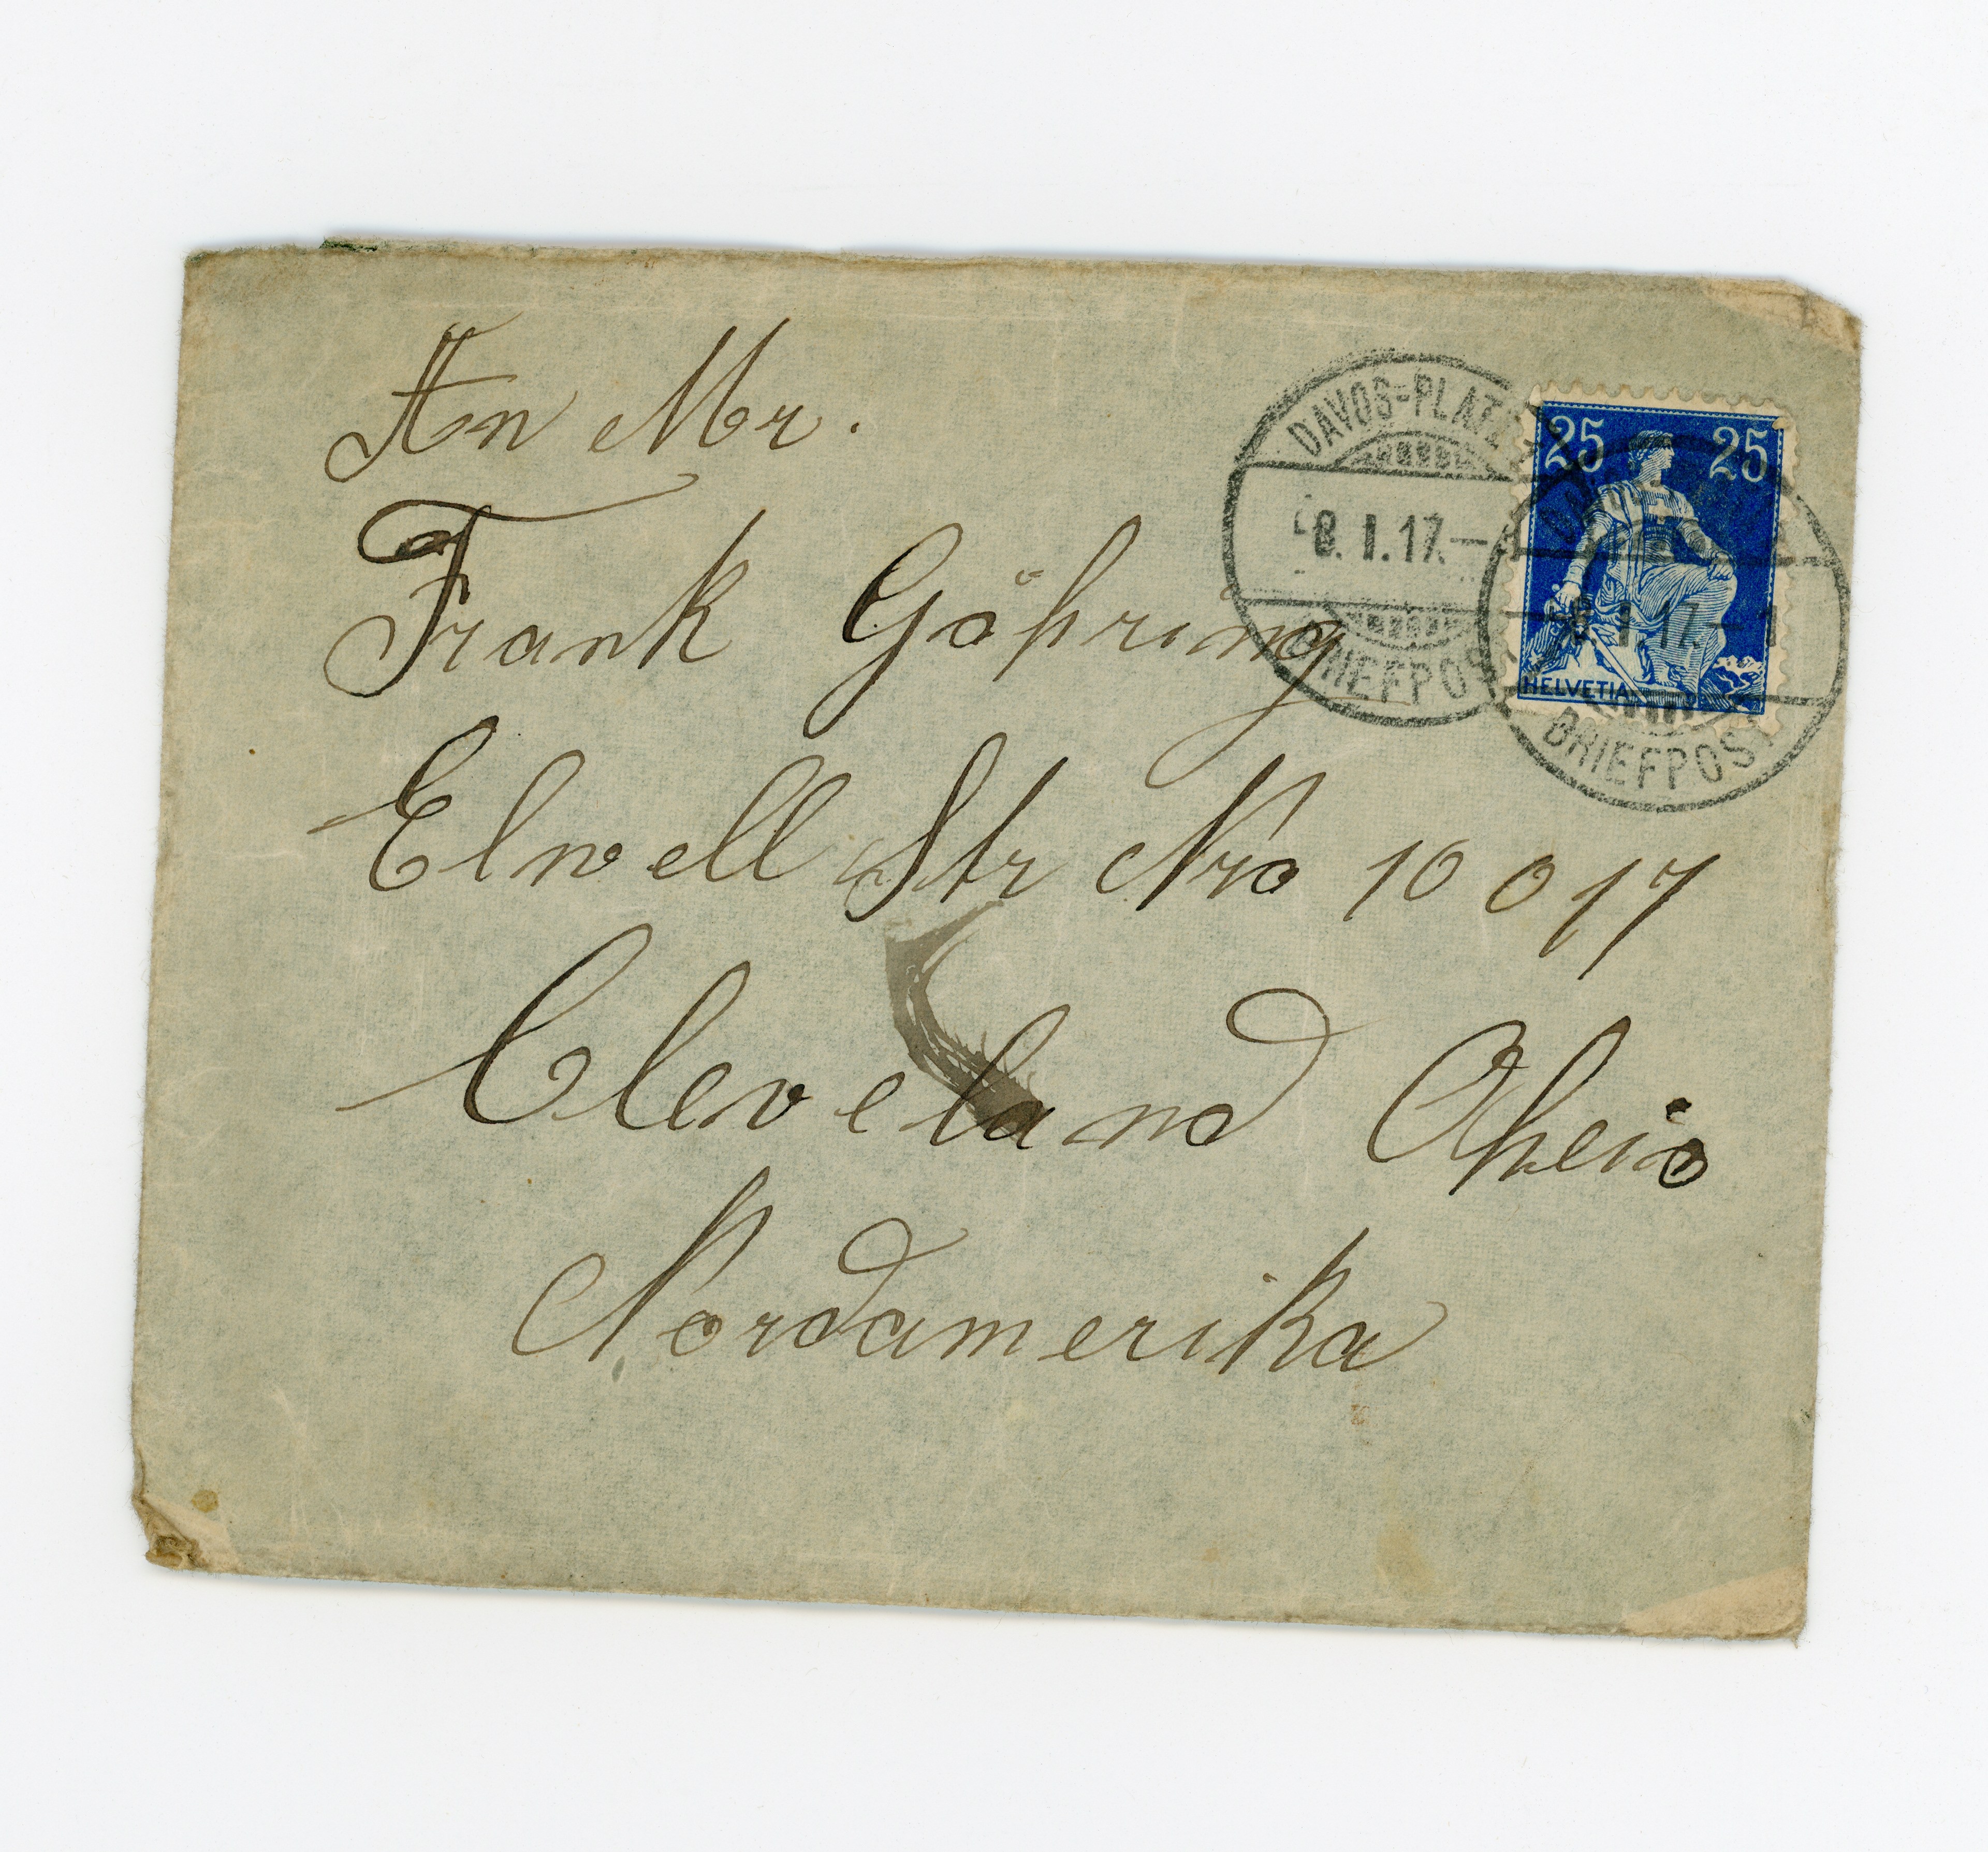 An Mr.
Frank Göhring
Elwell Str Nro 10017
Cleveland Oheio
Nordamerika
DAVOS-PLATZ
8. I. 17.–
BRIEFPOST
25 25
HELVETIA
8. I. 17.–
BRIEFPOST